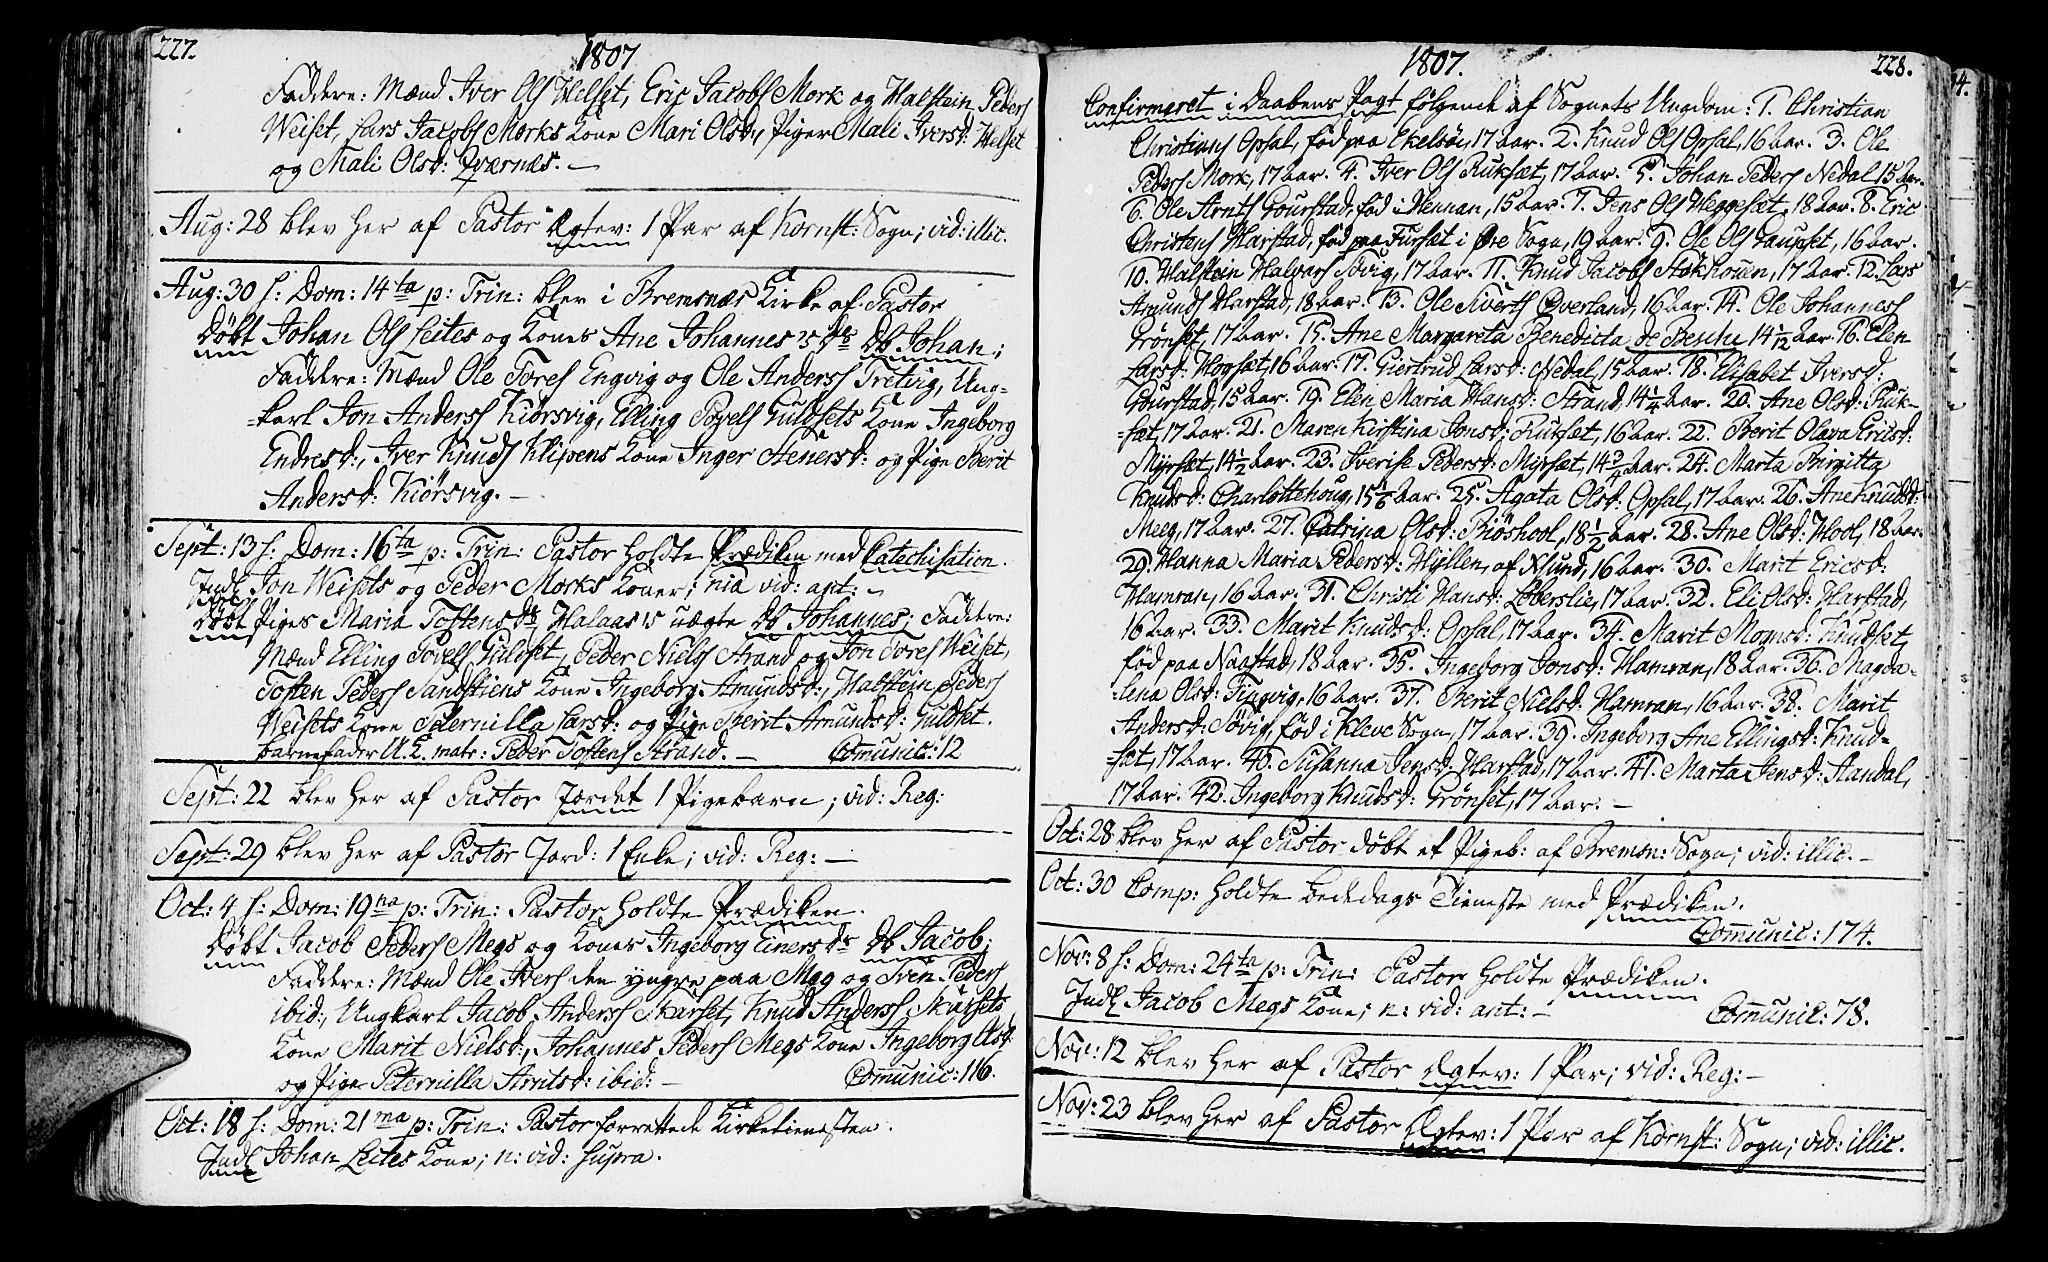 227.
1807
Faddere: Mænd Iver Ols Helset, Eric Jacobs Mork og Halstein Peders
Weiset, Lars Jacobs Morks Kone Mari Olsd:, Piger Mali Iversd: Helset
og Mali Olsd: Qværnæs. —
Aug: 28 blev her af Pastor Ægtev: 1 Par af Kornst: Sogn; vid: illic.
Aug: 30 f: Dom: 14ta p: Trin: blev i Bremsnæs Kirke af Pastor
Døbt Johan Ols Leites og Kones Ane Johannes ds Db Johan;
Faddere: Mænd Ole Tores Engvig og Ole Anderss Tretvig, Ung-
-karl Jon Anderss Kiørsvig, Elling Povels Guldsets Kone Ingeborg
Endresd:, Iver Knuds Klipens Kone Inger Stenersd: og Pige Berit
Andersd: Kiørsvig. —
Sept: 13 f: Dom: 16ta p: Trin: Pastor holdte Prædiken med Catechisation.
Indl Jon Weisets og Peder Morks Koner; nia vid: ant: —
Døbt Piges Maria Tostensds Halaas uægte Db Johannes; Faddere:
Mænd Elling Povels Guldset, Peder Niels Strand og Jon Tores Weiset,
Tosten Peders Sandstiens Kone Ingeborg Amundsd:, Halstein Peders
Weisets Kone Peternilla Larsd: og Pige Berit Amundsd: Guldset.
Barnefader U. E. matr: Peder Tostens Strand. — Comunic: 12
Sept: 22 blev her af Pastor Jordet 1 Pigebarn; vid: Reg:
Sept: 29 blev her af Pastor Jord: 1 Enke; vid: Reg: —
Oct: 4 f: Dom: 19na p: Trin: Pastor holdte Prædiken.
Døbt Jacob Peders Megs og Kones Ingeborg Einersds Db Jacob;
Faddere: Mænd Ole Ivers den yngre paa Meg og Sven Peders
ibid:, Ungkarl Jacob Anderss Skarset, Knud Anderss Skarsets
Kone Marit Nielsd:, Johannes Peders Megs Kone Ingeborg Olsd:
og Pige Peternilla Arntsd: ibid: — Comunic: 116.
Oct: 18 f: Dom: 21ma p: Trin: Pastor forrettede Kirketienesten.
Indl Johan Leites Kone; n: vid: supra.
1807.
228.
Confirmeret i Daabens Pagt følgende af Sognets Ungdom: 1. Christian
Christians Opsal, fød paa Ekelsøe, 17 Aar. 2. Knud Ols Opsal, 16 Aar. 3. Ole
Peders Mork, 17 Aar. 4. Iver Ols Ruksæt, 17 Aar. 5. Johan Peders Nedal 15 Aar.
6. Ole Arnts Gourstad, fød i Hennan, 15 Aar. 7. Jens Ols Heggeset, 18 Aar. 8. Eric
Christens Harstad, fød paa Furset i Øre Sogn, 19 Aar. 9. Ole Ols Gaupset, 16 Aar.
10. Halstein Halvars Søvig, 17 Aar. 11. Knud Jacobs Stokhouen, 17 Aar. 12. Lars
Amunds Harstad, 18 Aar. 13. Ole Siverts Øverland, 16 Aar. 14. Ole Johanness
Grønset, 17 Aar. 15. Ane Margareta Benedicta de Besche 14 1/12 Aar. 16. Elen
Larsd: Hogsæt, 16 Aar. 17. Giertrud Larsd: Nedal, 15 Aar. 18. Elisabet Iversd:
Gourstad, 15 Aar. 19. Elen Maria Hansd: Strand, 14 1/4 Aar. 20. Ane Olsd: Ruk-
-sæt, 17 Aar. 21. Maren Kirstina Jonsd: Ruksæt, 16 Aar. 22. Berit Olava Ericsd:
Myrsæt, 14 1/2 Aar. 23. Sverise Pedersd: Myrsæt, 14 3/4 Aar. 24. Marta Birgitta
Knudsd: Charlottehoug, 15 1/6 Aar. 25. Agata Olsd: Opsal, 17 Aar. 26. Ane Knudsd:
Meeg, 17 Aar. 27. Catrina Olsd: Biøshool, 18 1/2 Aar. 28. Ane Olsd: Hool, 18 Aar.
29. Hanna Maria Pedersd: Hyllen, af Nsund, 16 Aar. 30. Marit Ericsd:
Hamran, 16 Aar. 31. Christi Hansd: Løberslie, 17 Aar. 32. Eli Olsd: Harstad,
16 Aar. 33. Marit Knudsd: Opsal, 17 Aar. 34. Marit Mognsd: Knudset,
fød paa Naastad, 18 Aar. 35. Ingeborg Jonsd: Hamran, 18 Aar. 36. Magda-
-lena Olsd: Tingvig, 16 Aar. 37. Berit Nielsd: Hamran, 16 Aar. 38. Marit
Andersd: Søvig, fød i Kleve Sogn, 17 Aar. 39. Ingeborg Ane Ellingsd: Knud-
-sæt, 17 Aar. 40. Susanna Jensd: Harstad, 17 Aar. 41. Marta Jensd: Aandal,
17 Aar. 42. Ingeborg Knudsd: Grønset, 17 Aar. —
Oct: 28 blev her af Pastor døbt et Pigeb: af Bremsn: Sogn; vid: illic. —
Oct: 30 Comp: holdte bededags Tieneste med Prædiken.
Comunic: 174.
Nov: 8 f: Dom: 24ta p: Trin: Pastor holdte Prædiken.
Indl Jacob Megs Kone; n: vid: ant: — Comunic: 78.
Nov: 12 blev her af Pastor Ægtev: 1 Par; vid: Reg: —
Nov: 23 blev her af Pastor Ægtev: 1 Par af Kornst: Sogn; vid: illic.